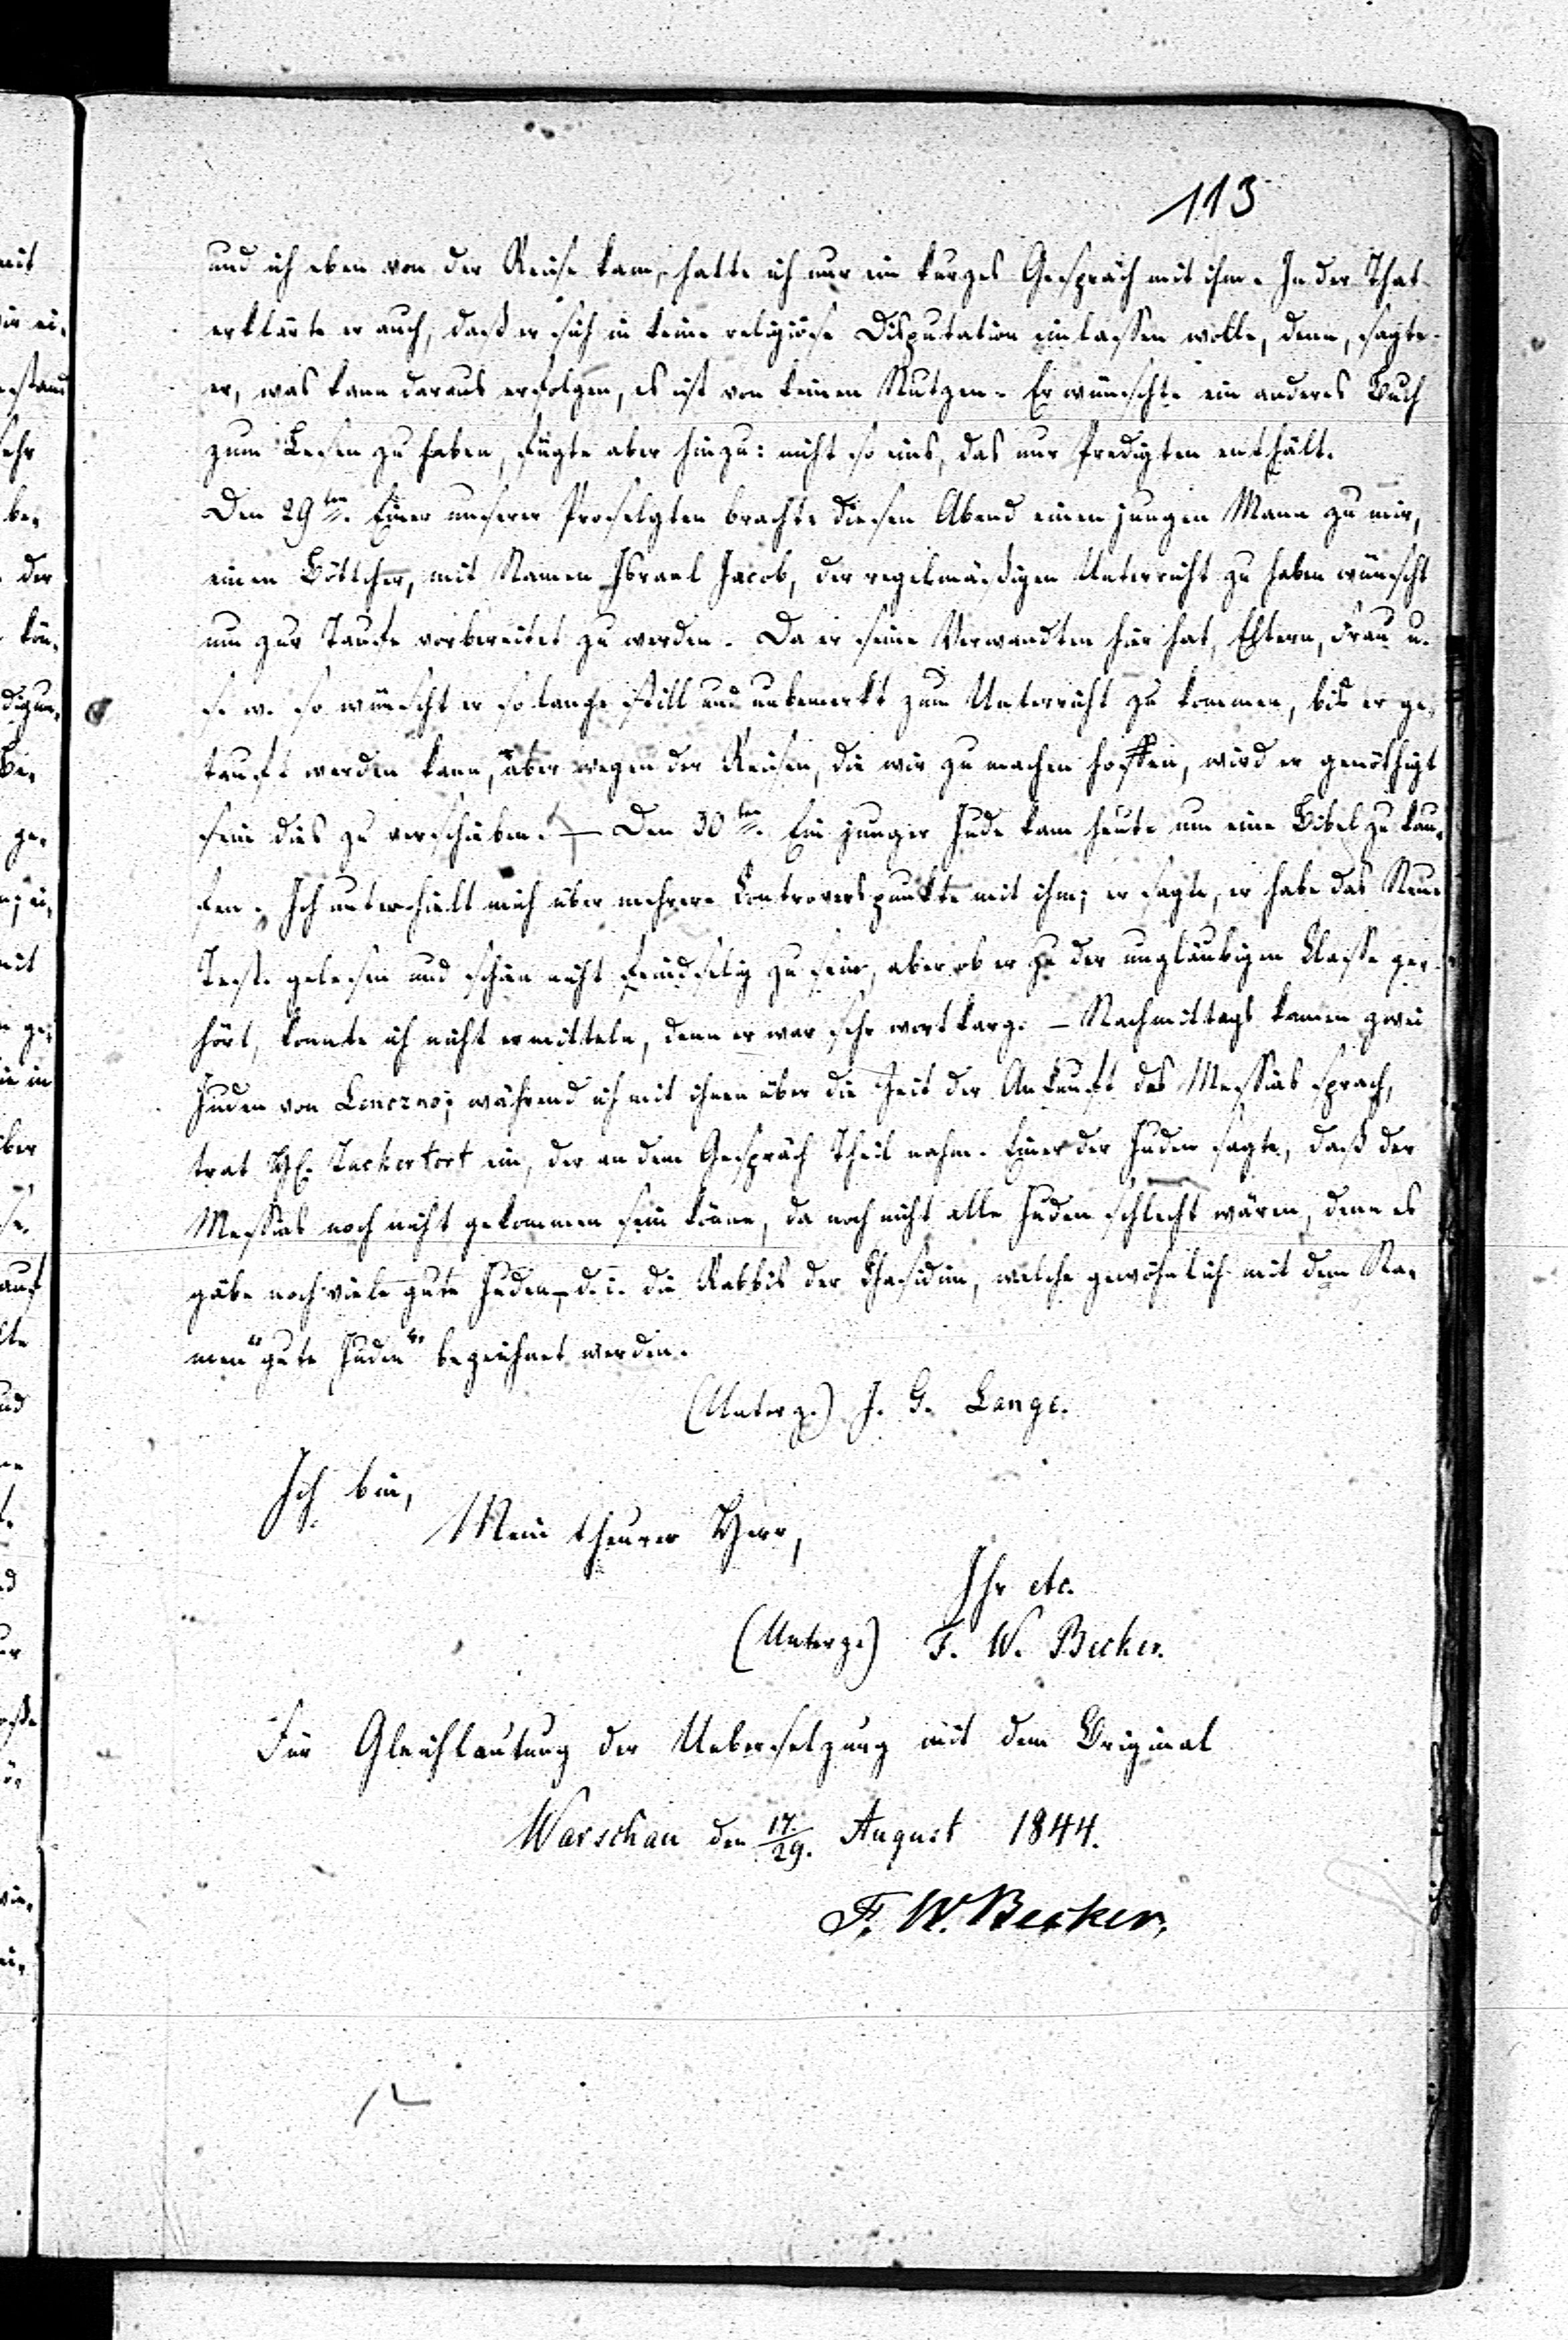 113
und ich eben von der Reise kam, hatte ich nur ein kurzes Gespräch mit ihm. In der That
erklärte er auch, daß er sich in keine religiöse Disputation einlassen wolle, denn, sagte
er, was kann daraus erfolgen, es ist von keinen Nutzen. Er wünschte ein anderes Buch
zum Lesen zu haben, fügte aber hinzu: nicht so eins, das nur Predigten enthält.
Den 29ten. Einer unserer Proselyten brachte diesen Abend einen jungen Mann zu mir,
einen Böttcher, mit Namen Israel Jacob, der regelmäßigen Unterricht zu haben wünscht
um zur Taufe vorbereitet zu werden. Da er seine Verwandten hier hat, Eltern, Frau u.
s. w. so wünscht er so lange still und unbemerkt zum Unterricht zu kommen, bis er ge-
tauft werden kann, aber wegen der Reisen, die wir zu machen hoffen, wird er genöthigt
sein dies zu verschieben. — Den 30ten. Ein junger Jude kam heute um eine Bibel zu kau-
fen. Ich unterhielt mich über mehrere Controverspunkte mit ihm; er sagte, er habe das Neue
Test. gelesen und schien nicht feindselig zu sein, aber ob er zu der ungläubigen Classe ge-
hört, konnte ich nicht ermitteln, denn er war sehr wortkarg. — Nachmittags kamen zwei
Juden von Lenczno; während ich mit ihnen über die Zeit der Ankunft des Messias sprach,
trat H. Zackertort ein, der an dem Gespräch Theil nahm. Einer der Juden sagte, daß der
Messias noch nicht gekommen sein könne, da noch nicht alle Juden schlecht wären, denn es
gäbe noch viele gute Juden, d. i. die Rabbis der Chasidim, welche gewöhnlich mit dem Na-
men "gute Juden" bezeichnet werden.
(Unterz.) J. G. Lange.
Ich bin,
Mein theurer Herr,
Ihr etc.
(Unterz.) F. W. Becker.
Für Gleichlautung der Uebersetzung mit dem Original
Warschau den 17./29. August 1844.
F. W. Becker.